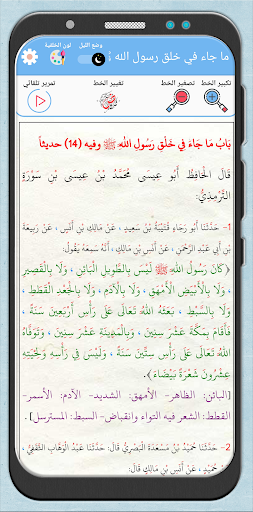 ما جاء في خلق رسول الله ﷺ
وضع الليل
لون الخلفية
تكبير الخط
تصغير الخط
تغيير الخط
تمرير تلقائي
بَابُ مَا جَاءَ فِي خَلْقِ رَسُولِ اللهِ ﷺ وفيه (14) حديثاً
قَالَ الْحَافِظُ أَبُو عِيسَى مُحَمَّدُ بْنُ عِيسَى بْنِ سَوْرَةَ
التِّرْمِذِيُّ:
1- حَدَّثَنَا أَبُو رَجَاءٍ قُتَيْبَةُ بْنُ سَعِيدٍ ، عَنْ مَالِكِ بْنِ أَنَسٍ ، عَنْ رَبِيعَةَ
بْنِ أَبِي عَبْدِ الرَّحْمَنِ ، عَنْ أَنَسِ بْنِ مَالِكٍ ، أَنَّهُ سَمِعَهُ يَقُولُ:
﴿كَانَ رَسُولُ اللهِ ﷺ لَيْسَ بِالطَّوِيلِ الْبَائِنِ ، وَلَا بِالْقَصِيرِ
، وَلَا بِالْأَبْيَضِ الْأَمْهَقِ ، وَلَا بِالْآدَمِ ، وَلَا بِالْجَعْدِ الْقَطَطِ ،
وَلَا بِالسَّبْطِ ، بَعَثَهُ اللهُ تَعَالَى عَلَى رَأْسِ أَرْبَعِينَ سَنَةً ،
فَأَقَامَ بِمَكَّةَ عَشْرَ سِنِينَ ، وَبِالْمَدِينَةِ عَشْرَ سِنِينَ ، وَتَوَفَّاهُ
اللهُ تَعَالَى عَلَى رَأْسِ سِتِّينَ سَنَةً ، وَلَيْسَ فِي رَأْسِهِ وَلِحْيَتِهِ
عِشْرُونَ شَعْرَةً بَيْضَاءَ﴾.
[البائن: الظاهر- الأمهق: الشديد- الآدم: الأسمر-
القطط: الشعر فيه التواء وانقباض- السبط: المسترسل].
2- حَدَّثَنَا حُمَيْدُ بْنُ مَسْعَدَةَ الْبَصْرِيُّ قَالَ: حَدَّثَنَا عَبْدُ الْوَهَّابِ الثَّقَفِيُّ ،
عَنْ حُمَيْدٍ ، عَنْ أَنَسِ بْنِ مَالِكٍ ، قَالَ: